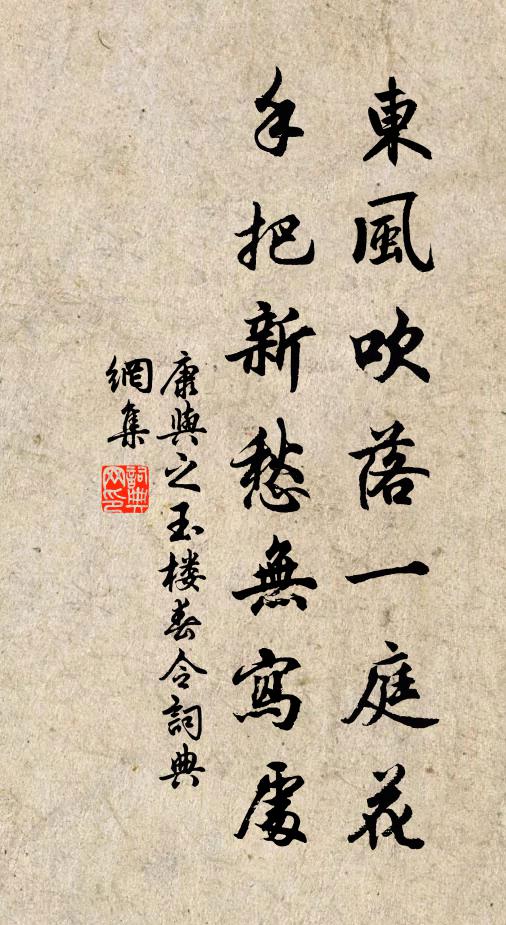 東風吹落一庭花
手把新愁無寫處
康與之玉楼春令詞典
網集
詞典
网印